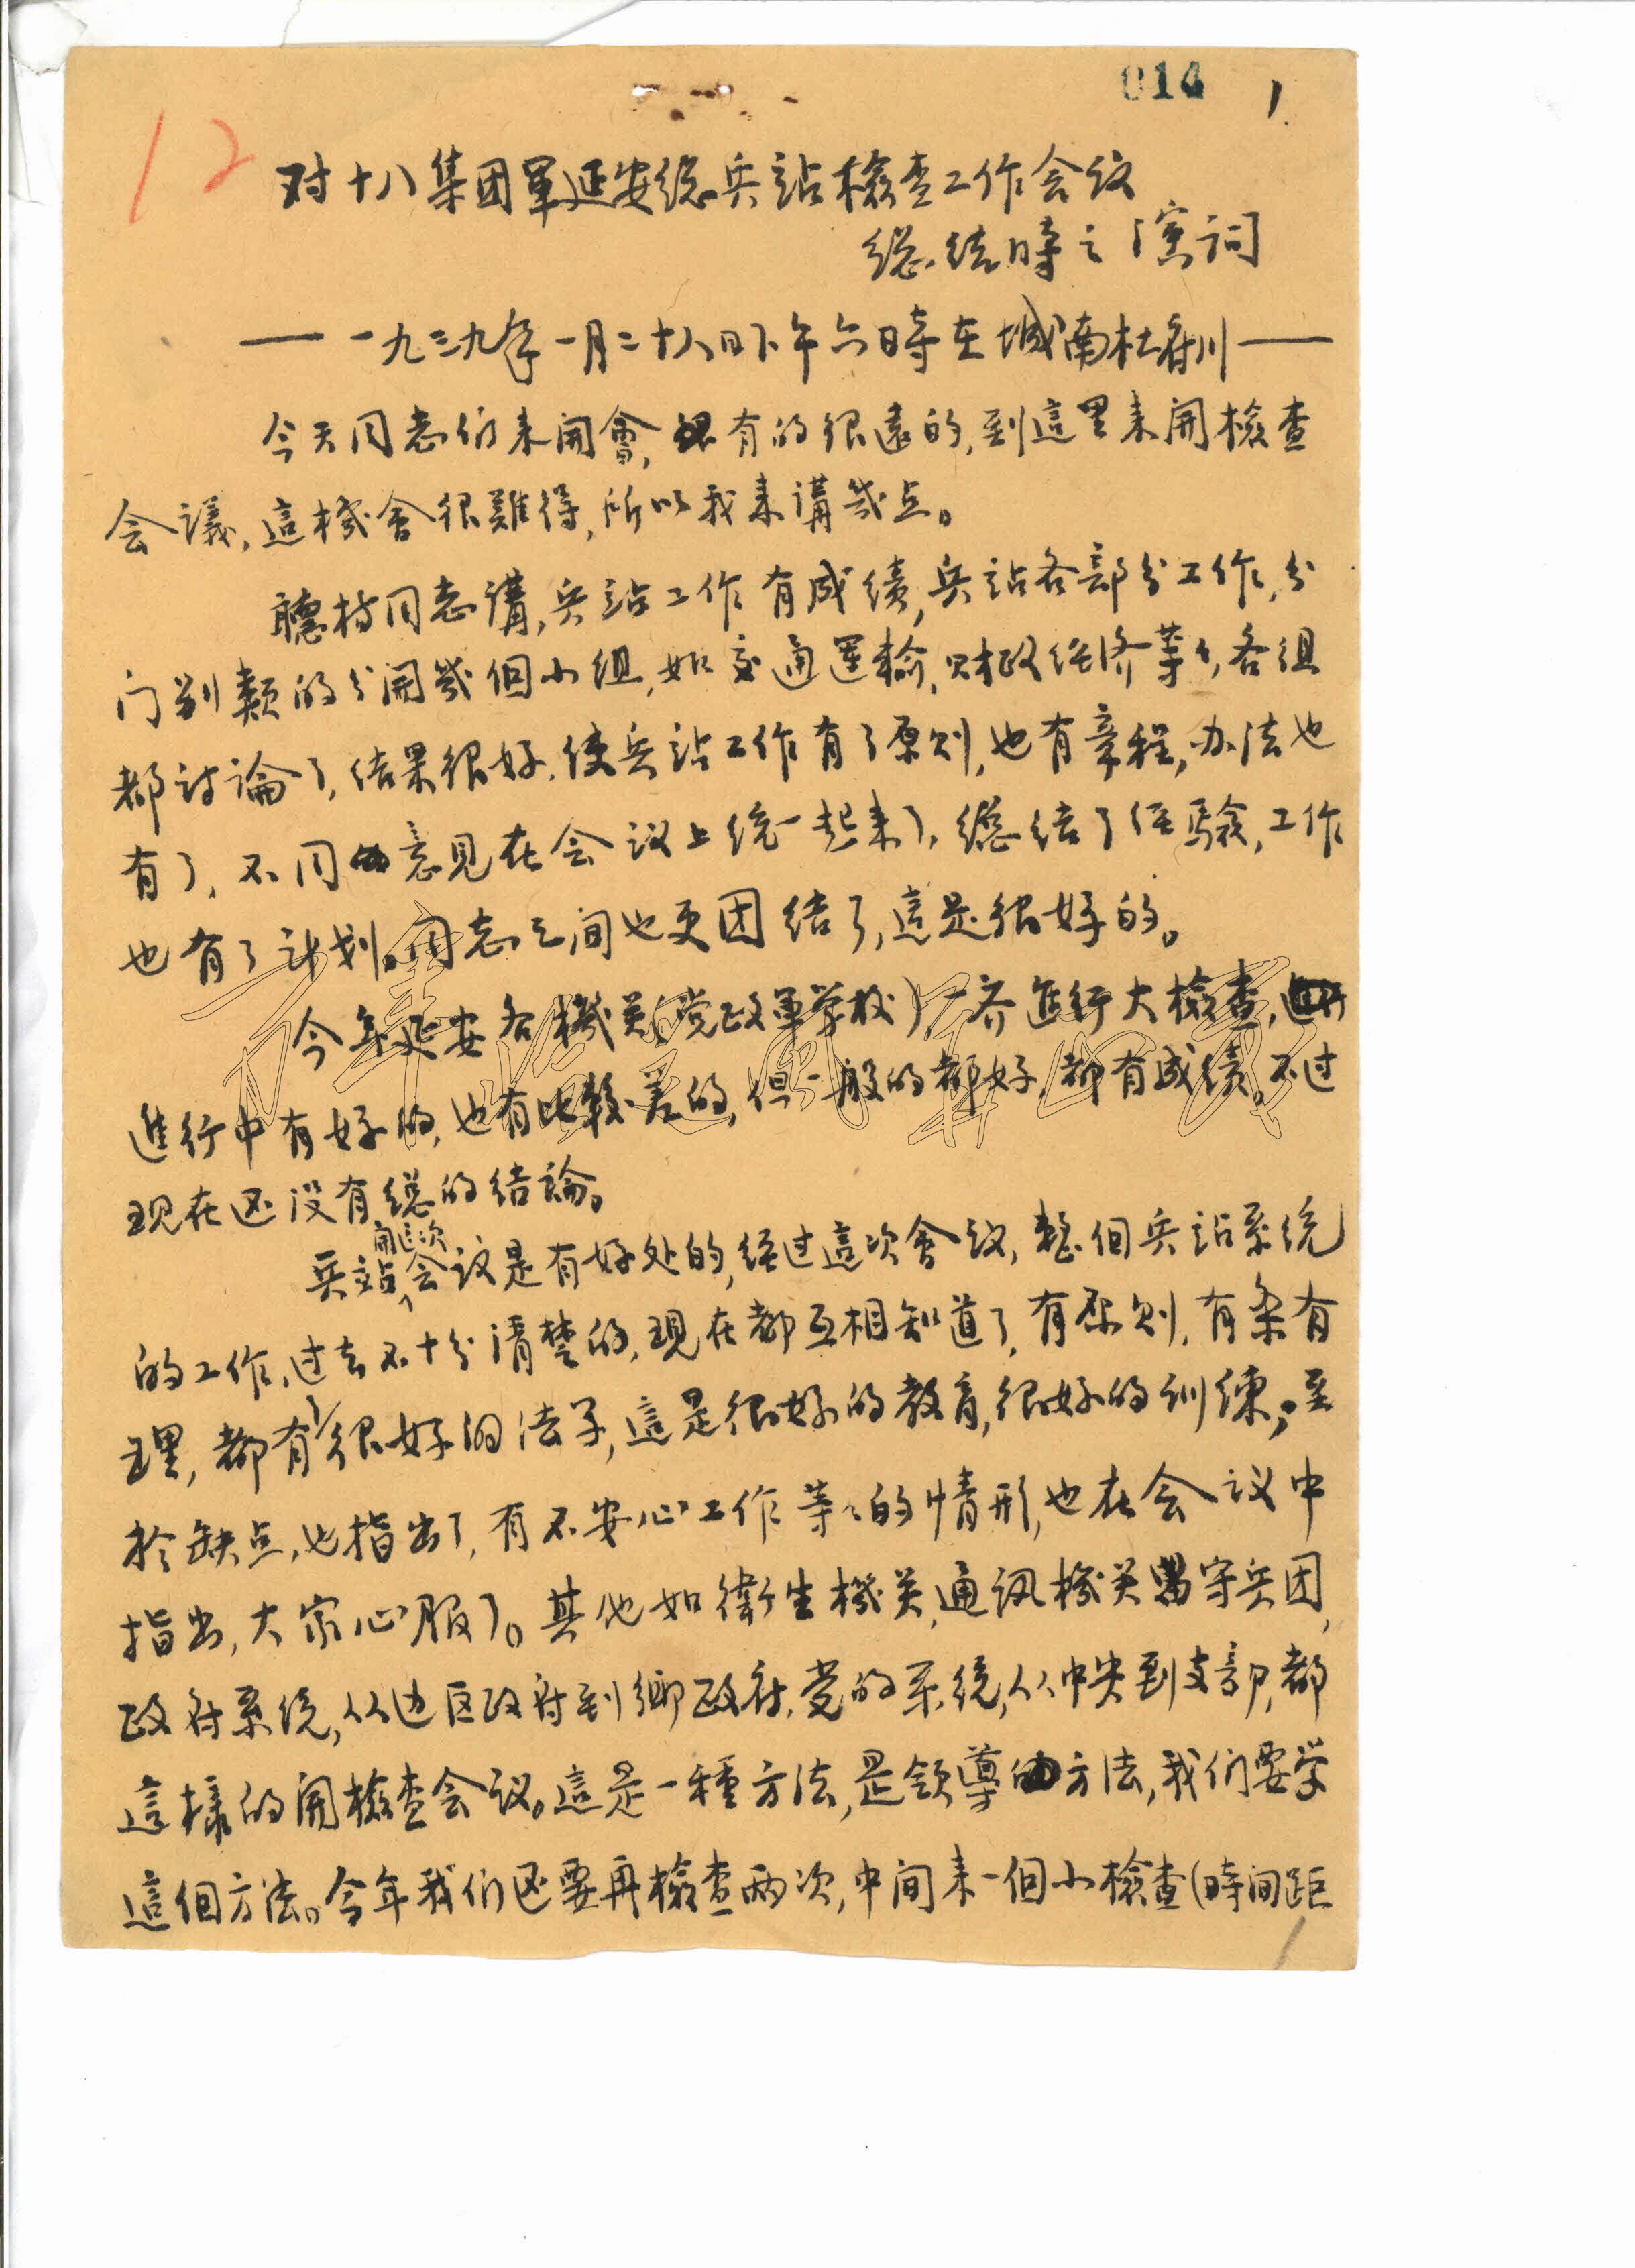 014 1
12
对十八集团軍延安总兵站檢查工作会议
總结時之演詞
——一九三九年一月二十八日下午六時在城南杜甫川——
今天同志们来開會，有的很遠的，到這里来開檢查
会議，這機會很難得，所以我来講几点。
聽 同志講，兵站工作有成绩，兵站各部分工作，分
门别類的分開幾個小组，如交通運輸，财政经济等等，各组
都讨論了，结果很好，使兵站工作有了原则，也有章程，办法也
有了，不同的意見在会议上统一起来了，總结了经驗，工作
也有了计划。同志之间也更团结了，這是很好的。
今年延安各機关（党政軍学校）一齐進行大檢查，
進行中有好的，也有比較差的，但一般的都好，都有成绩。不过
现在还没有總的结論。
兵站開這次会议是有好处的，经过這次會议，整個兵站系统
的工作，过去不十分清楚的，现在都互相知道了，有原则，有条有
理，都有了很好的法子，這是很好的教育，很好的训練，至
於缺点，也指出了，有不安心工作等等的情形，也在会议中
指出，大家心服了。其他如衛生機关，通讯機关留守兵团，
政府系统，从边区政府到鄉政府，党的系统，从中央到支部，都
這樣的開檢查会议。這是一種方法，是领導的方法，我们要学
這個方法。今年我们还要再檢查两次，中间来一個小檢查（時间距